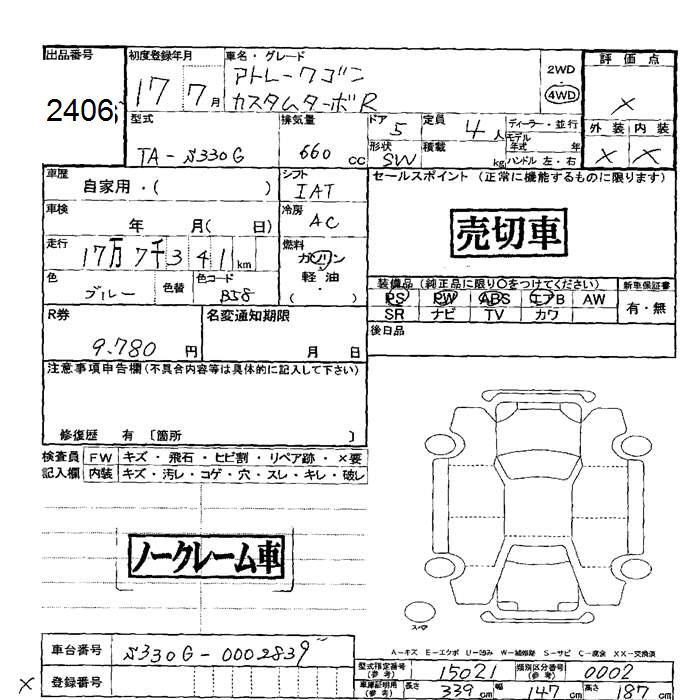 出品番号
2406
初度登録年月
17 7月
車名・グレード
アトレーワゴン
カスタムターボR
2WD
4WD
評価点
×
外装 内装
× ×
型式
TA-S330G
排気量
660 cc
ドア 5
定員 4人
ディーラー・並行
形状 SW
積載 kg
モデル年式 年
ハンドル 左・右
車歴
自家用・( )
シフト
IAT
車検
年 月( 日)
冷房
AC
走行
17万7千341km
燃料
ガソリン
軽油
( )
色
ブルー
色替
色コード
B58
セールスポイント (正常に機能するものに限ります)
売切車
装備品 (純正品に限り〇をつけてください)
PS PW ABS エアB AW
SR ナビ TV カワ
新車保証書
有・無
後日品
R券
9.780 円
名変通知期限
月 日
注意事項申告欄(不具合内容等は具体的に記入して下さい)
修復歴 有 〔箇所 〕
検査員 FW キズ・飛石・ヒビ割・リペア跡・×要
記入欄 内装 キズ・汚レ・コゲ・穴・スレ・キレ・破レ
ノークレーム車
スペア
A-キズ E-エクボ U-凹み W-補修跡 S-サビ C-腐食 XX-交換済
車台番号
S330G-0002839
× 登録番号
型式指定番号(参考) 15021
類別区分番号(参考) 0002
車庫証明用(参考) 長さ 339cm 幅 147cm 高さ 187cm